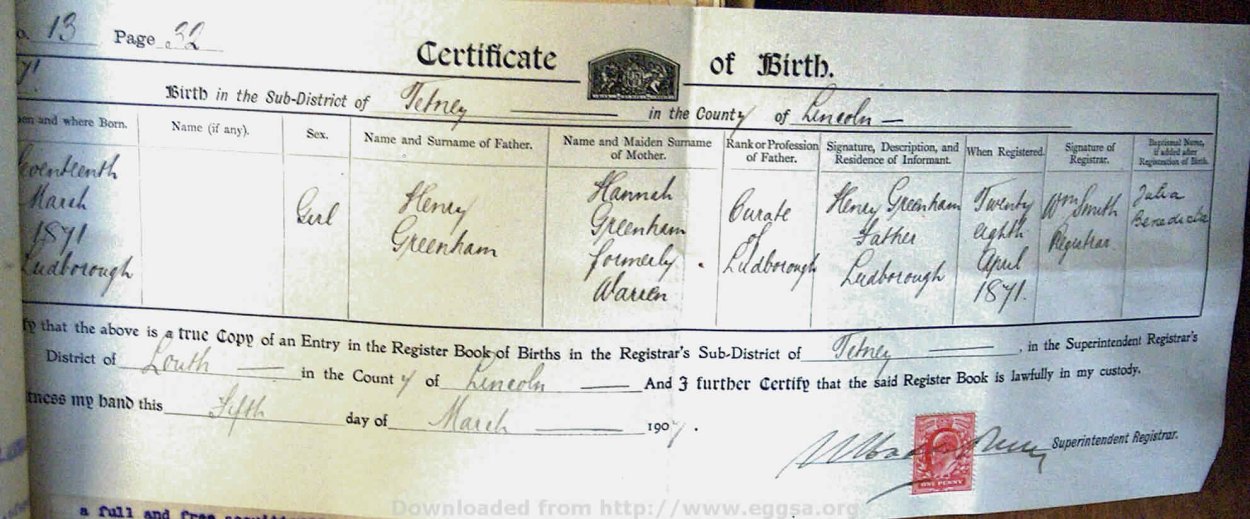 o. 13 Page 32
Certificate of Birth.
71
Birth in the Sub-District of Tetney in the County of Lincoln
en and where Born. Name (if any). Sex. Name and Surname of Father. Name and Maiden Surname of Mother. Rank or Profession of Father. Signature, Description, and Residence of Informant. When Registered. Signature of Registrar. Baptismal Name, if added after Registration of Birth.
eventeenth
March
1871
Ludborough
Girl
Henry
Greenham
Hannah
Greenham
formerly
Warren
Curate
of
Ludborough
Henry Greenham
Father
Ludborough
Twenty
eighth
April
1871.
Wm Smith
Registrar
Julia
Benedicta
fy that the above is a true Copy of an Entry in the Register Book of Births in the Registrar's Sub-District of Tetney, in the Superintendent Registrar's
District of Louth in the County of Lincoln And I further Certify that the said Register Book is lawfully in my custody.
tness my hand this Fifth day of March 1907.
Superintendent Registrar.
ONE PENNY
a full and free
Downloaded from http://www.eggsa.org